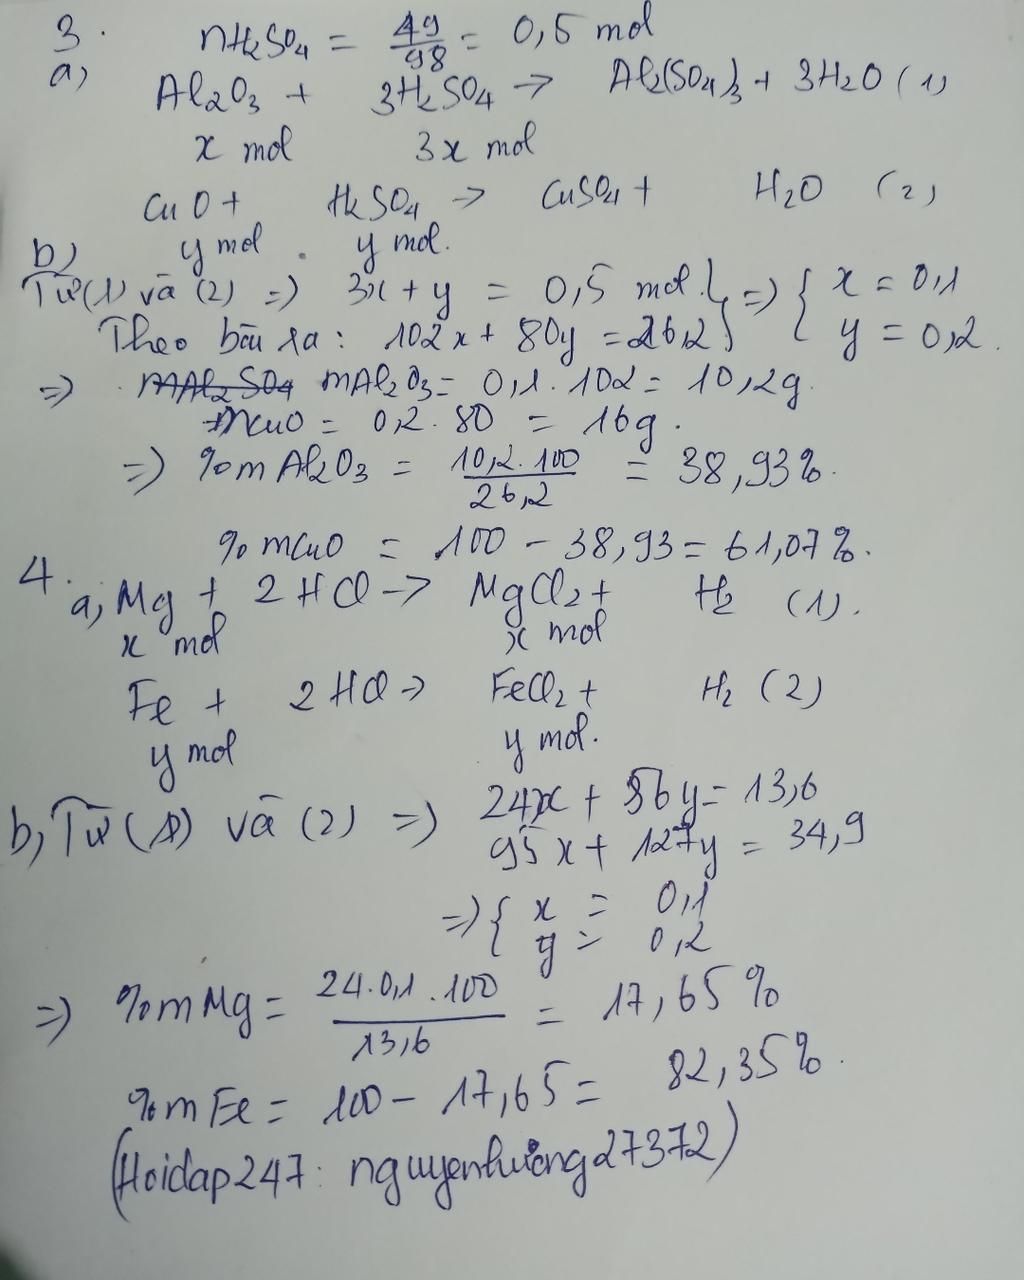 3. nH₂SO₄ = 49/98 = 0,5 mol
a, Al₂O₃ + 3H₂SO₄ → Al₂(SO₄)₃ + 3H₂O (1)
x mol 3x mol
CuO + H₂SO₄ → CuSO₄ + H₂O (2)
b) y mol . y mol.
Từ (1) và (2) => 3x + y = 0,5 mol. } => { x = 0,1
Theo bài ra: 102x + 80y = 26,2 } { y = 0,2.
=> mAl₂SO₄ mAl₂O₃ = 0,1 . 102 = 10,2g.
mCuO = 0,2 . 80 = 16g.
=> %mAl₂O₃ = 10,2 . 100 / 26,2 = 38,93%.
%mCuO = 100 - 38,93 = 61,07%.
4. a, Mg + 2HCl → MgCl₂ + H₂ (1).
x mol x mol
Fe + 2HCl → FeCl₂ + H₂ (2)
y mol y mol.
b, Từ (1) và (2) => 24x + 56y = 13,6
95x + 127y = 34,9
=> { x = 0,1
y = 0,2
=> %mMg = 24.0,1.100 / 13,6 = 17,65%
%mFe = 100 - 17,65 = 82,35%.
(Hoidap247: nguyenhuong27372)